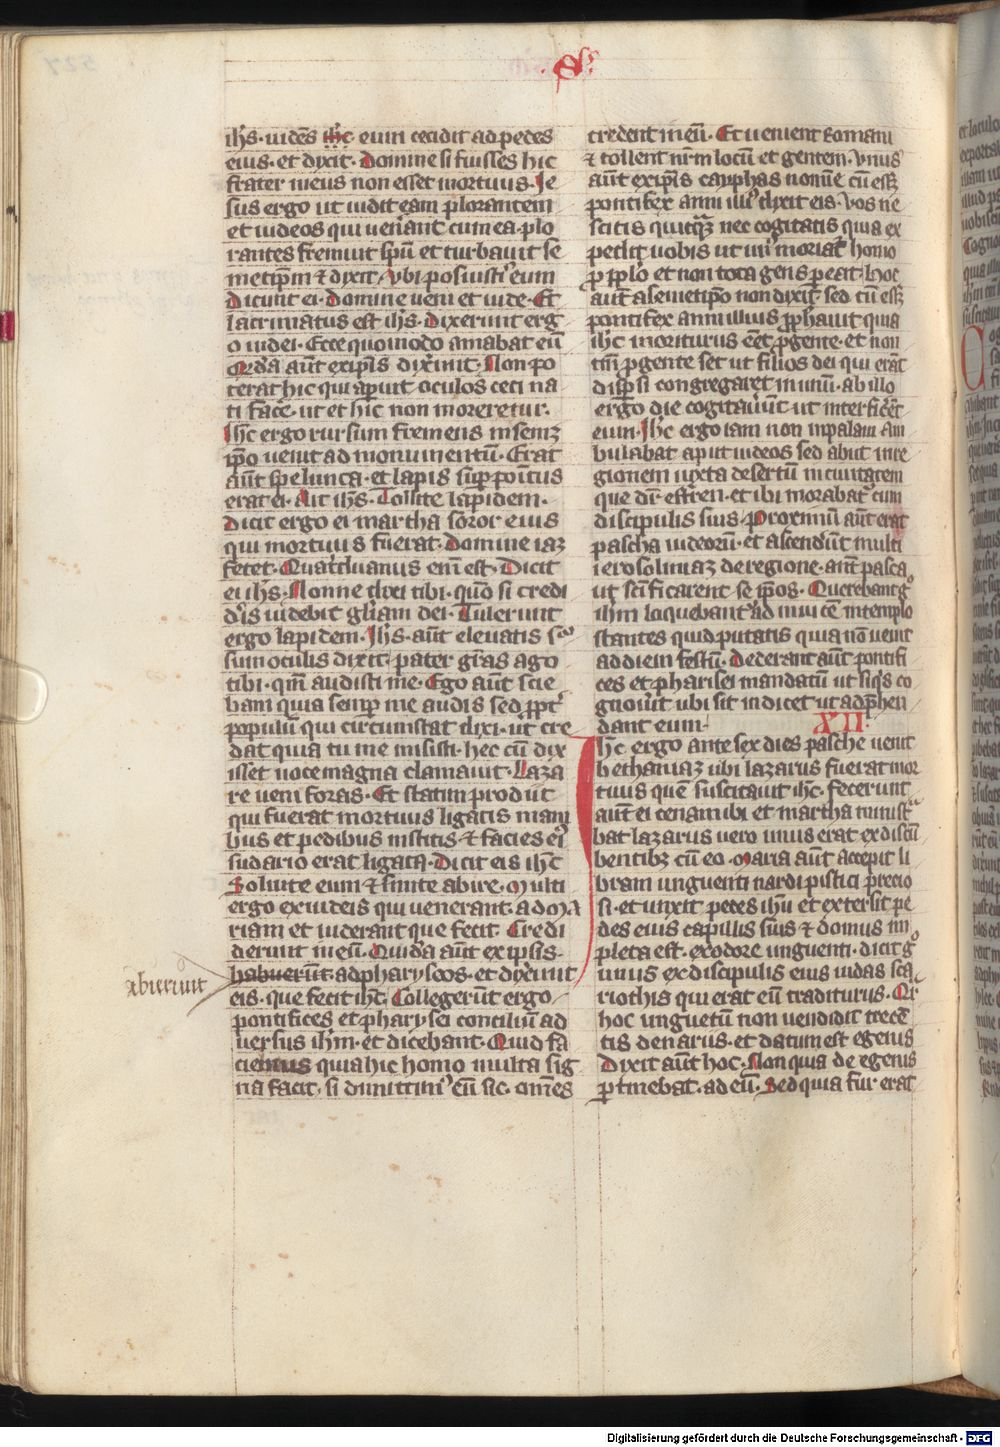 ih̅s. uide̅s ih̅c eum cecidit ad pedes
eius. et dixit. Domine si fuisses hic
frater meus non esset mortuus. Je
sus ergo ut uidit eam plorantem
et iudeos qui uenerant cum ea plo
rantes fremuit sp̅u et turbauit se
metip̅m ⁊ dyxit. Vbi posuisti eum
dicunt ei. Domine ueni et uide. Et
lacrimatus est ih̅s. Dixerunt erg
o iudei. Ecce quomodo amabat eu̅
Q̅da̅ au̅t ex ip̅is dixerunt. Non po
terat hic qui aperuit oculos ceci na
ti face̅. ut et hic non moreretur.
Ih̅c ergo rursum fremens in semꝫ
ip̅o uenit ad monumentu̅. Erat
au̅t spelunca. et lapis sup̅poitus
erat ei. Ait ih̅s. Tollite lapidem.
Dicit ergo ei martha soror eius
qui mortuus fuerat. Domine iaꝫ
fetet. Quatriduanus eni̅ est. Dicit
ei ih̅s. Nonne dixi tibi. quo̅ si credi
d̅is uidebis gl̅iam dei. Tulerunt
ergo lapidem. Ih̅s. au̅t eleuatis s̅
sum oculis dixit. pater gr̅as ago
tibi. qm̅ audisti me. Ego au̅t scie
bam quia semp̅ me audis sed pp̅t̅
populu̅ qui circumstat dixi. ut cre
dat quia tu me misisti. hec cu̅ dix
isset uoce magna clamauit. Laza
re ueni foras. Et statim prodiit
qui fuerat mortuus ligatis mani
bus et pedibus institis. ⁊ facies ei̅
sudario erat ligata. Dicit eis ih̅c
Soluite eum ⁊ sinite abire. Multi
ergo ex iudeis qui uenerant. ad Ma
riam et uiderant que fecit. Credi
derunt in eu̅. Quida̅ au̅t ex ipsis
habueru̅t. ad pharyseos. et dyxerunt
abierunt
eis. que fecit ih̅c. Collegeru̅t ergo
pontifices et pharysei conciliu̅ ad
uersus ih̅m. et dicebant. Quid fa
cimus quia hic homo multa sig
na facit. si dimittim̅ eu̅ sic. om̅es
credent in eu̅. Et uenient Romani
⁊ tollent nr̅m locu̅ et gentem. Vnus
au̅t ex ip̅is cayphas no̅i̅e cu̅ eēꝫ
pontifex anni illi̅ dixit eis. Vos ne
scitis quicq̅ꝫ nec cogitatis quia ex
pedit uobis ut un̅ moriat̅ homo
p̅ pp̅lo et non tota gens p̅eat. hoc
au̅t a semetip̅o non dixit. sed cu̅ eēꝫ
pontifex anni illius pp̅hauit quia
ih̅c moriturus e̅et p̅ gente. et non
tm̅ p̅ gente set ut filios dei qui era̅t
disp̅si congregaret in unu̅. ab illo
ergo die cogitaueru̅t ut interfice̅t
eum. Ih̅c ergo iam non in palam am
bulabat aput iudeos sed abiit in re
gionem iuxta desertu̅ in ciuitatem
que d̅r effren. et ibi morabat̅ cum
discipulis suis. Proximu̅ au̅t erat
pascha iudeoru̅. et ascenderu̅t multi
ierosolimaꝫ de regione. ant̅ pasca
ut sc̅ificarent se ip̅os. Querebant g̊
ih̅m loquebant̅ ad inuice̅ in templo
stantes quid putatis quia no̅ uenit
ad diem festu̅. Dederant au̅t pontifi
ces et pharisei mandatu̅ ut siq̅s co
gnou̅it ubi sit indicet ut adp̅hen
dant eum. XII.
Ih̅c ergo ante sex dies pasche uenit
bethaniaꝫ ubi lazarus fuerat mor
tuus que̅ suscitauit ih̅c. fecerunt
au̅t ei cenam ibi et martha minist̅
bat lazarus uero unus erat ex discu̅
bentibꝫ cu̅ eo. Maria au̅t accepit li
bram unguenti nardi pistici precio
si. et unxit pedes ih̅u et extersit pe
des eius capillis suis ⁊ domus im
pleta est. ex odore unguenti. dicit g̊
unus ex discipulis eius iudas sca
riothis qui erat eu̅ traditurus. Qr̅
hoc unguetu̅ non uendidit trece̅
tis denarus. et datum est egenis
Dyxit au̅t hoc. Non quia de egenis
p̅tinebat. ad eu̅. Sed quia fur erat